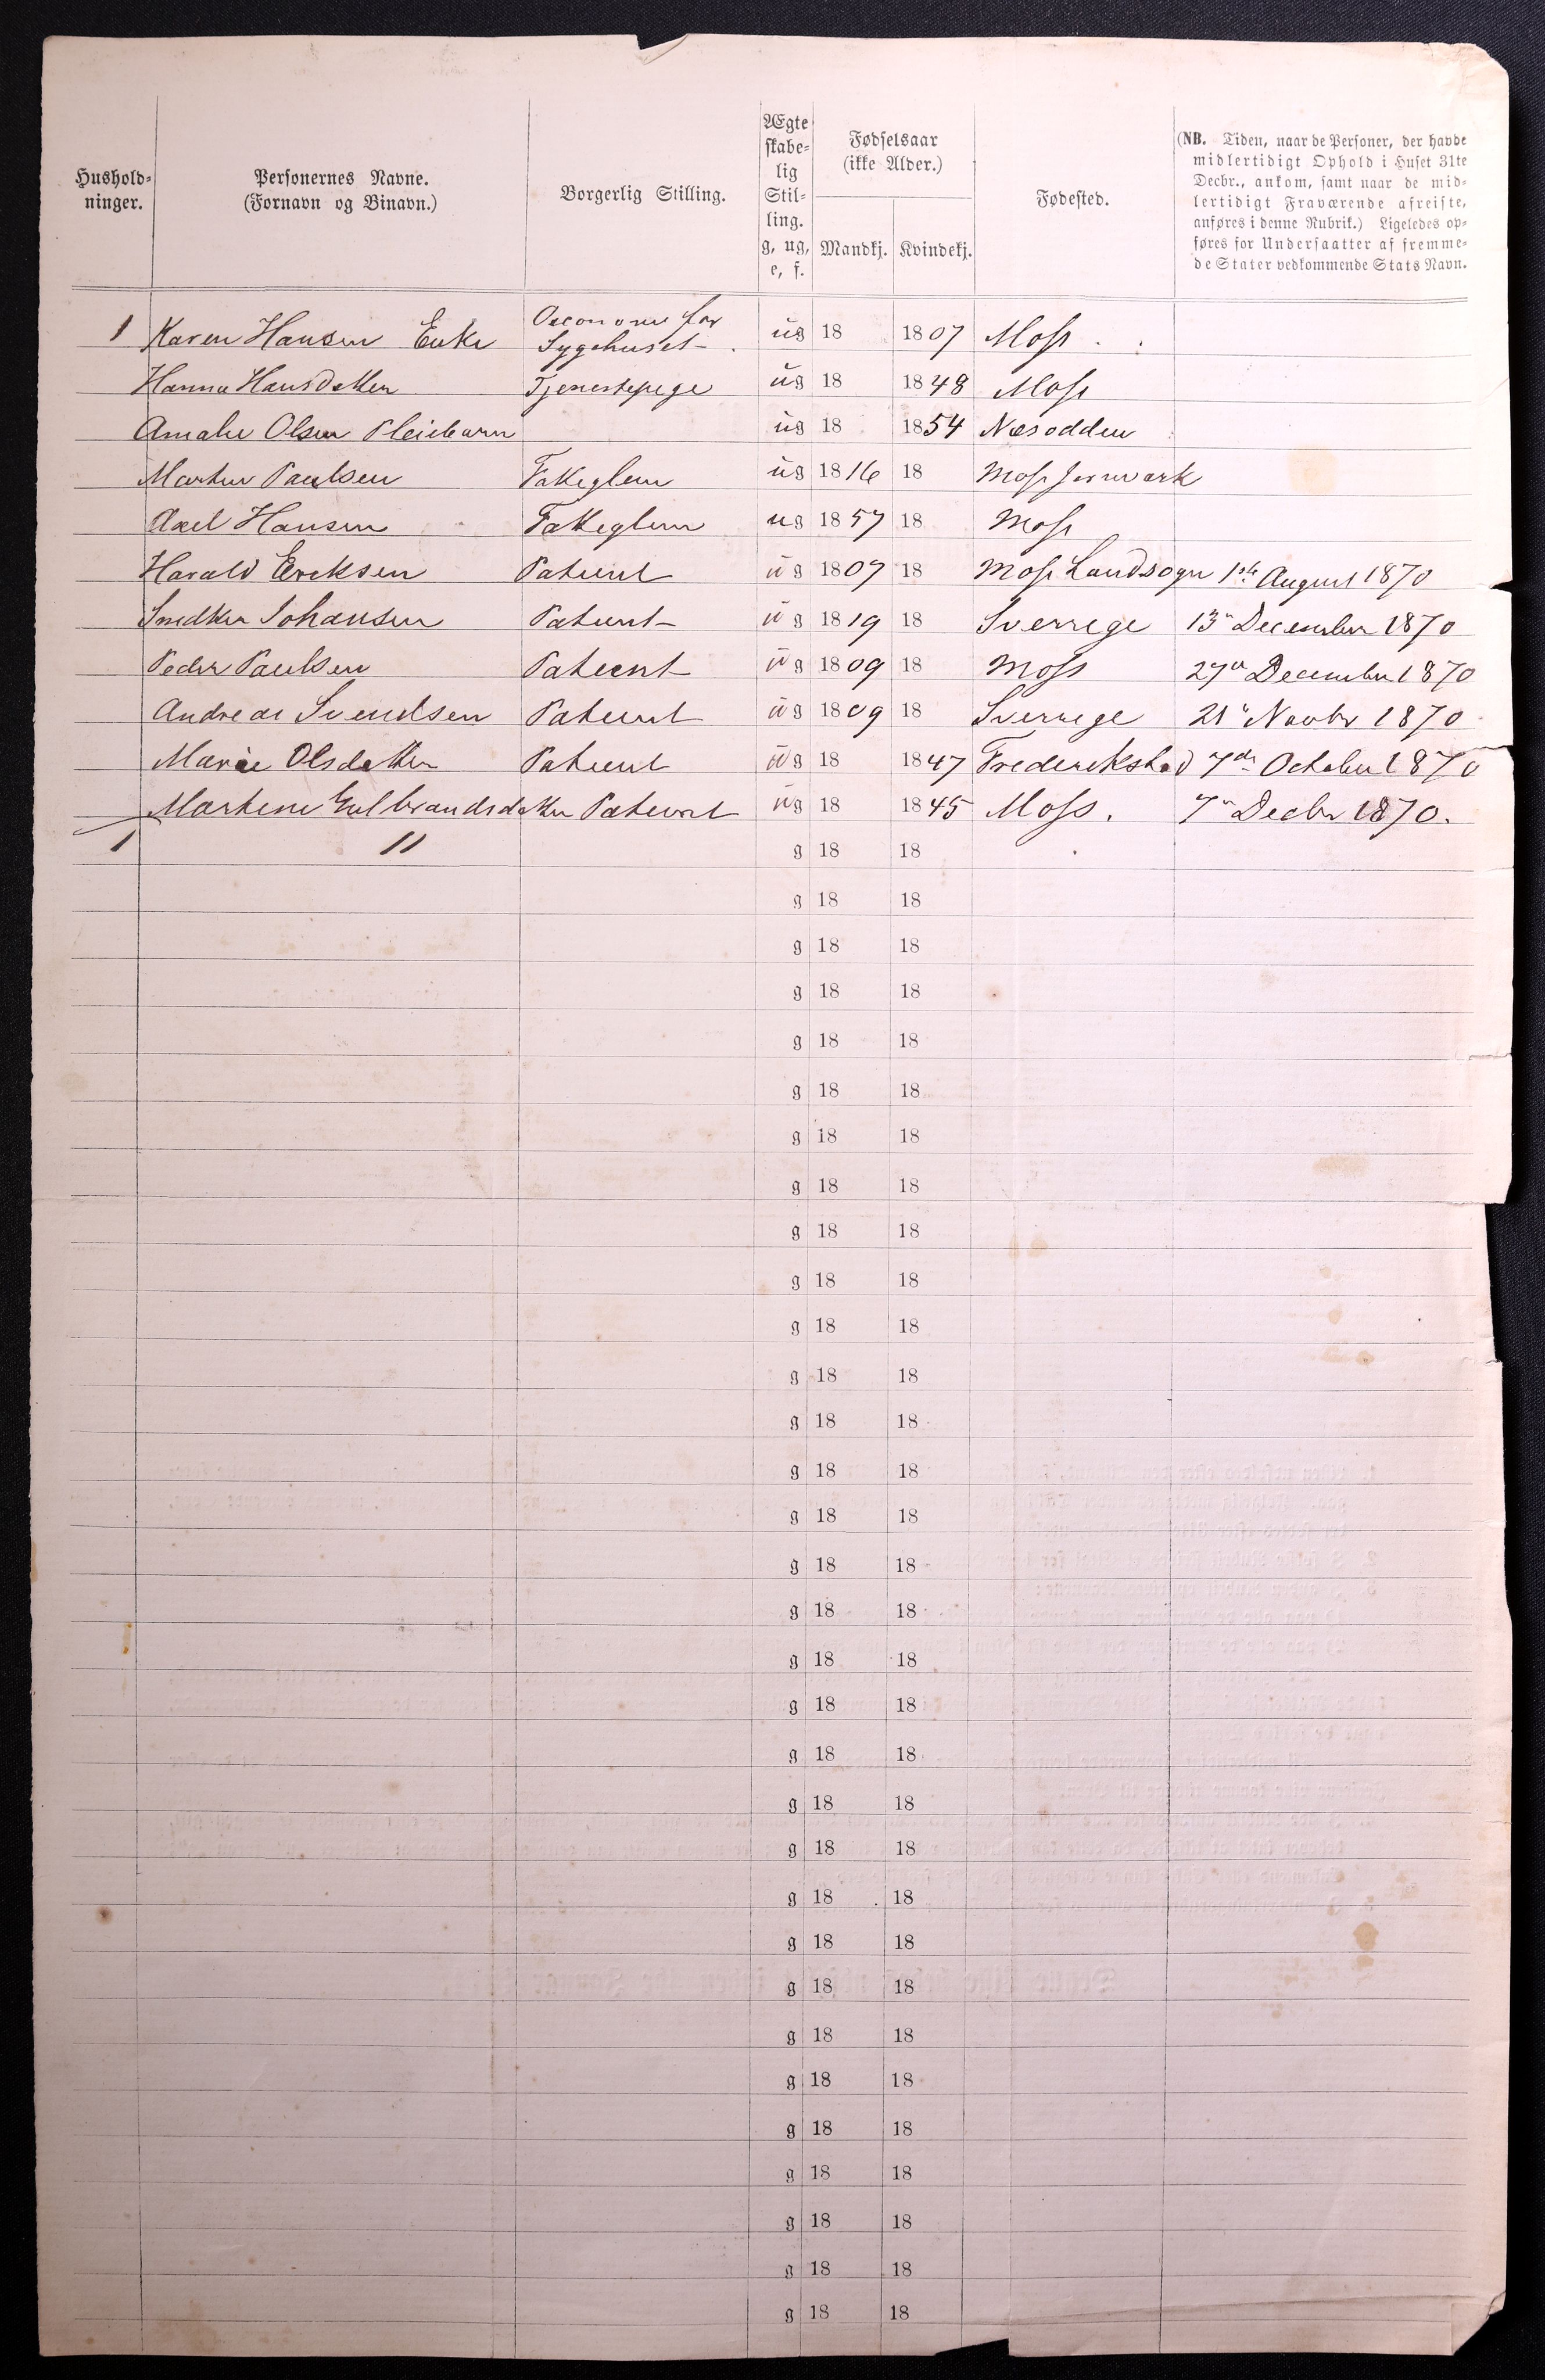 Hushold-
ninger.
Personernes Navne.
(Fornavn og Binavn.)
Borgerlig Stilling.
Ægte
skabe-
lig
Stil-
ling.
g, ug,
e, f.
Fødselsaar
(ikke Alder.)
Mandkj.
Kvindekj.
Fødested.
(NB. Tiden, naar de Personer, der havde
midlertidigt Ophold i Huset 31te
Decbr., ankom, samt naar de mid-
lertidigt Fraværende afreiste,
anføres i denne Rubrik.) Ligeledes op-
føres for Undersaatter af fremme-
de Stater vedkommende Stats Navn.
1 Karen Hansen Enke Oeconom for Sygehuset ug 18 1807 Moss
Hanna Hansdatter Tjenestepige ug 18 1848 Moss
Amalie Olsen Pleiebarn ug 18 1854 Næsodden
Martin Paulsen Fatteglem ug 1816 18 Moss Jernværk
Axel Hansen Fatteglem ug 1857 18 Moss
Harald Ericksen Patient ug 1807 18 Moss Landsogn 1ste August 1870
Snedker Johansen Patient ug 1819 18 Sverrege 13de December 1870
Peder Paulsen Patient ug 1809 18 Moss 27de December 1870
Andreas Svendsen Patient ug 1809 18 Sverrege 21de Novbr 1870
Marie Olsdatter Patient ug 18 1847 Frederikstad 7de October 1870
Martene Gulbrandsdatter Patient ug 18 1845 Moss. 7de Decbr 1870.
1 11 g 18 18
g 18 18
g 18 18
g 18 18
g 18 18
g 18 18
g 18 18
g 18 18
g 18 18
g 18 18
g 18 18
g 18 18
g 18 18
g 18 18
g 18 18
g 18 18
g 18 18
g 18 18
g 18 18
g 18 18
g 18 18
g 18 18
g 18 18
g 18 18
g 18 18
g 18 18
g 18 18
g 18 18
g 18 18
g 18 18
g 18 18
g 18 18